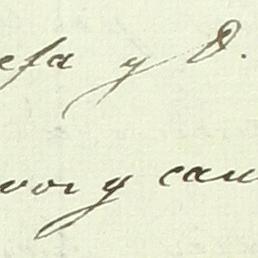 efa y D.
vor y cau